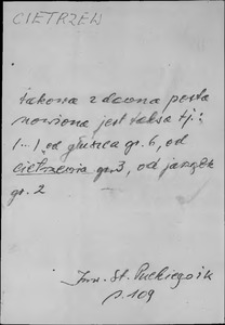 CIETRZEW
takowa z dawna posta
nowiona jest taksa tj.:
(...) od głuszca gr. 6, od
cietrzewia gr. 3, od jarząb
gr. 2
Inw. St.
p. 109